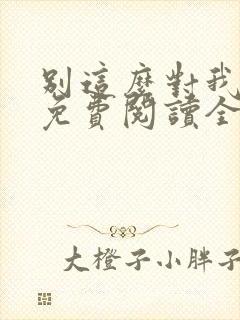 別這麼對我
免費閱讀全
大橙子小胖子